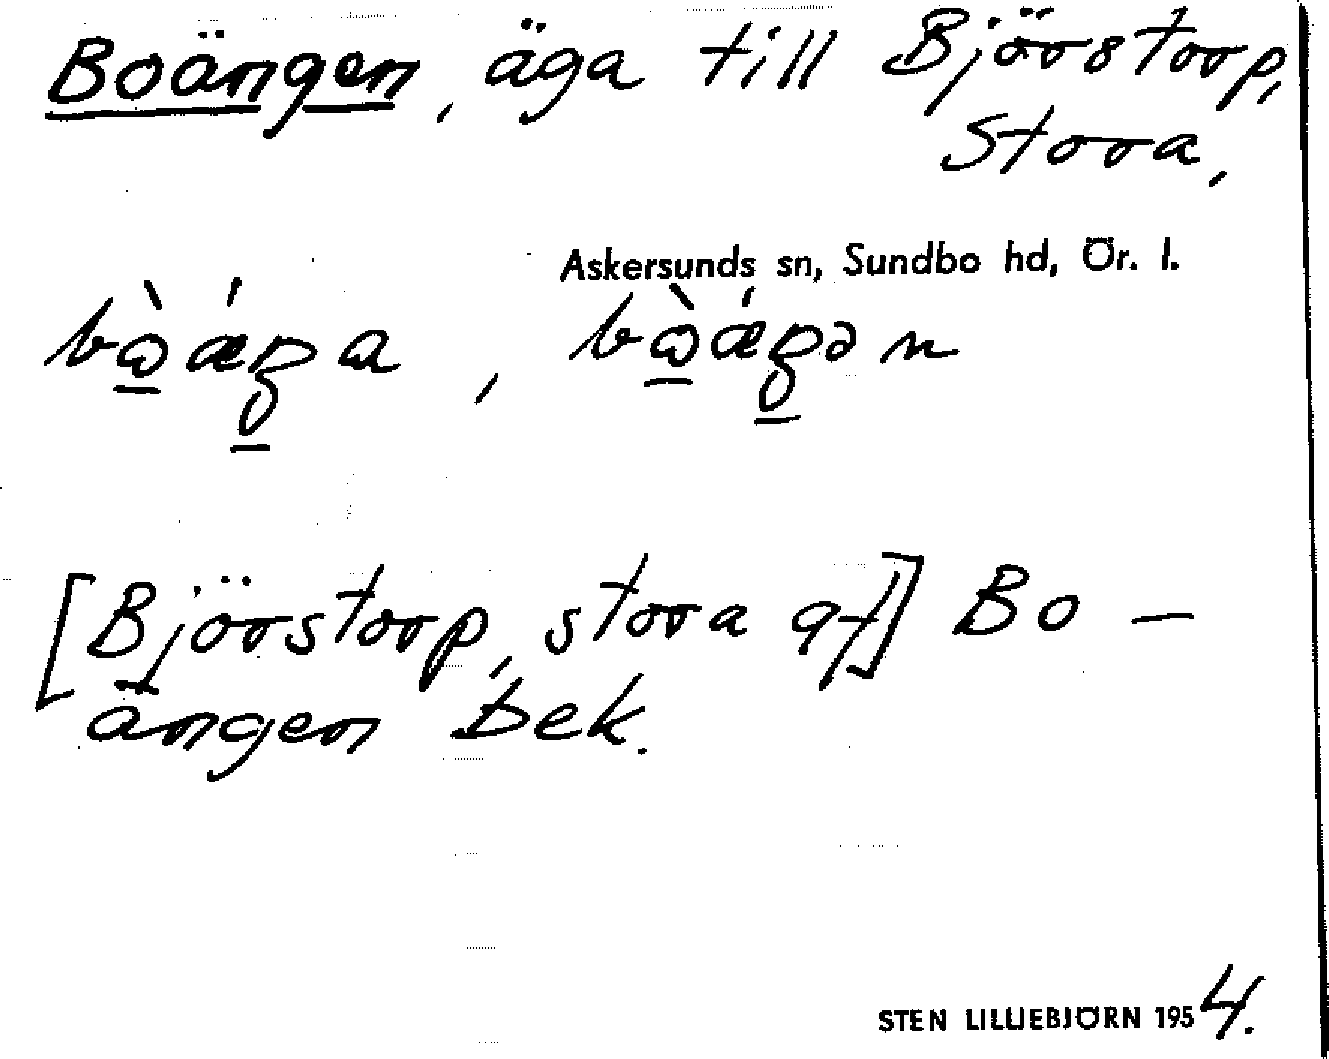 Boängen, äga till Björstorp,
Stora,
Askersunds sn, Sundbo hd, Ör. l.
[Björstorp, stora qf] Bo –
ängen bek.
STEN LILLIEBJÖRN 1954.